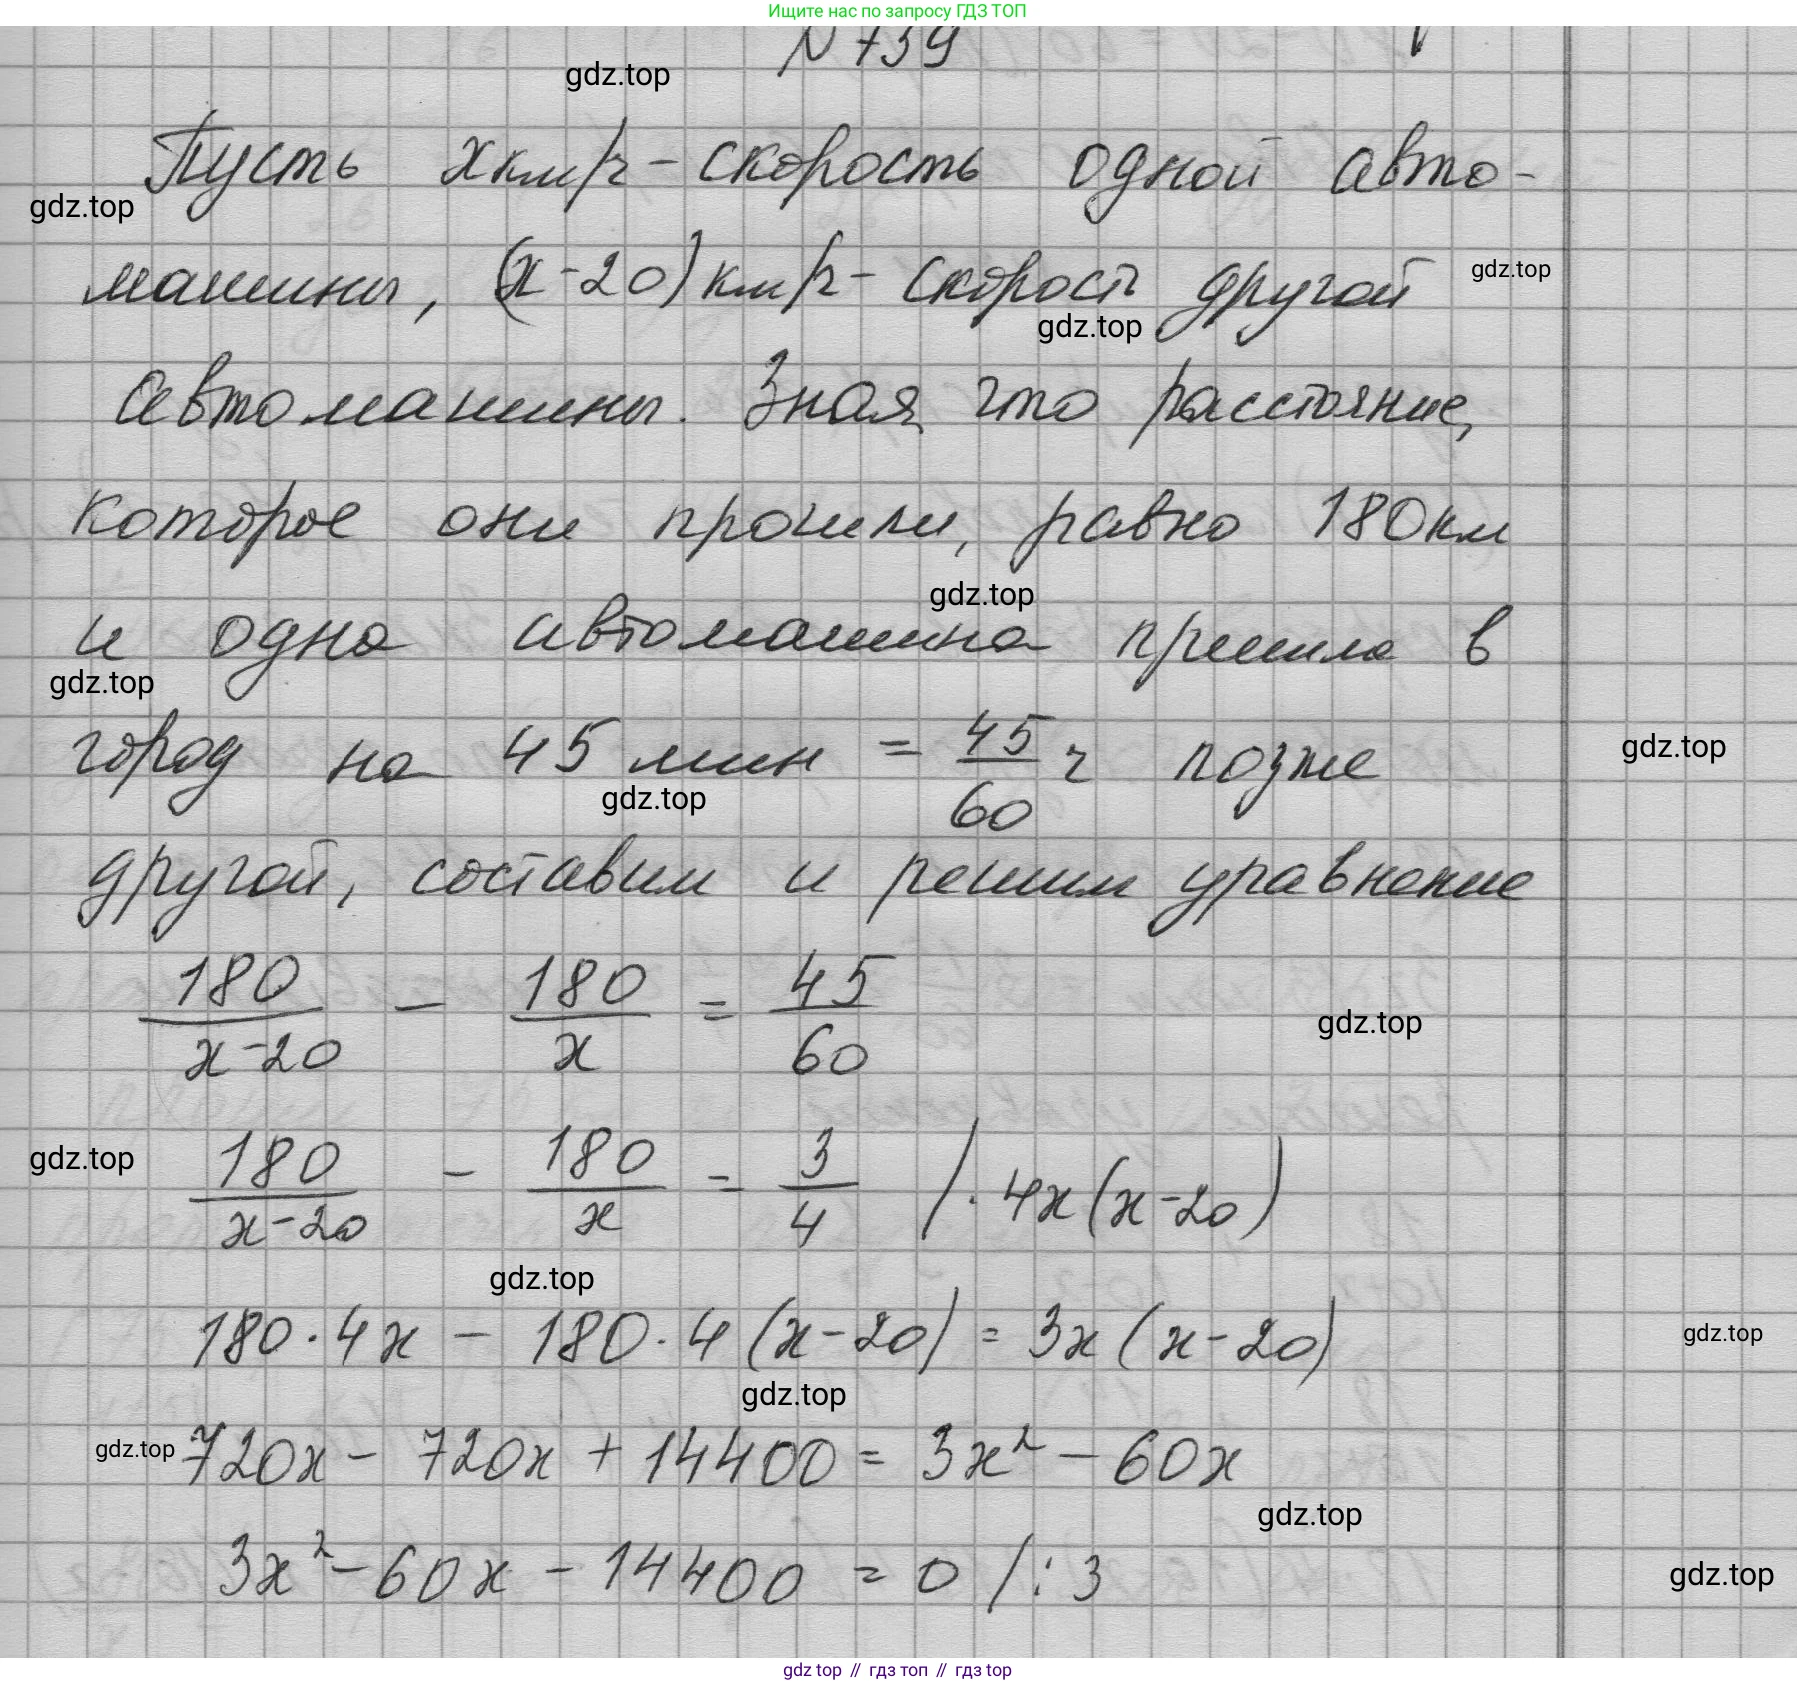 Ищите нас по запросу ГДЗ ТОП
N 739
gdz.top
Пусть x км/ч - скорость одной авто-
gdz.top
машины, (x-20) км/ч - скорость другой
gdz.top
gdz.top
автомашины. Зная, что расстояние,
которое они прошли, равно 180 км
gdz.top
и одна автомашина пришла в
gdz.top
город на 45 мин = 45/60 ч позже
gdz.top
gdz.top
другой, составим и решим уравнение
180/(x-20) - 180/x = 45/60
gdz.top
180/(x-20) - 180/x = 3/4 /· 4x(x-20)
gdz.top
gdz.top
180·4x - 180·4(x-20) = 3x(x-20)
gdz.top
gdz.top
720x - 720x + 14400 = 3x² - 60x
gdz.top
gdz.top
3x² - 60x - 14400 = 0 /:3
gdz.top
gdz top // гдз топ // гдз top